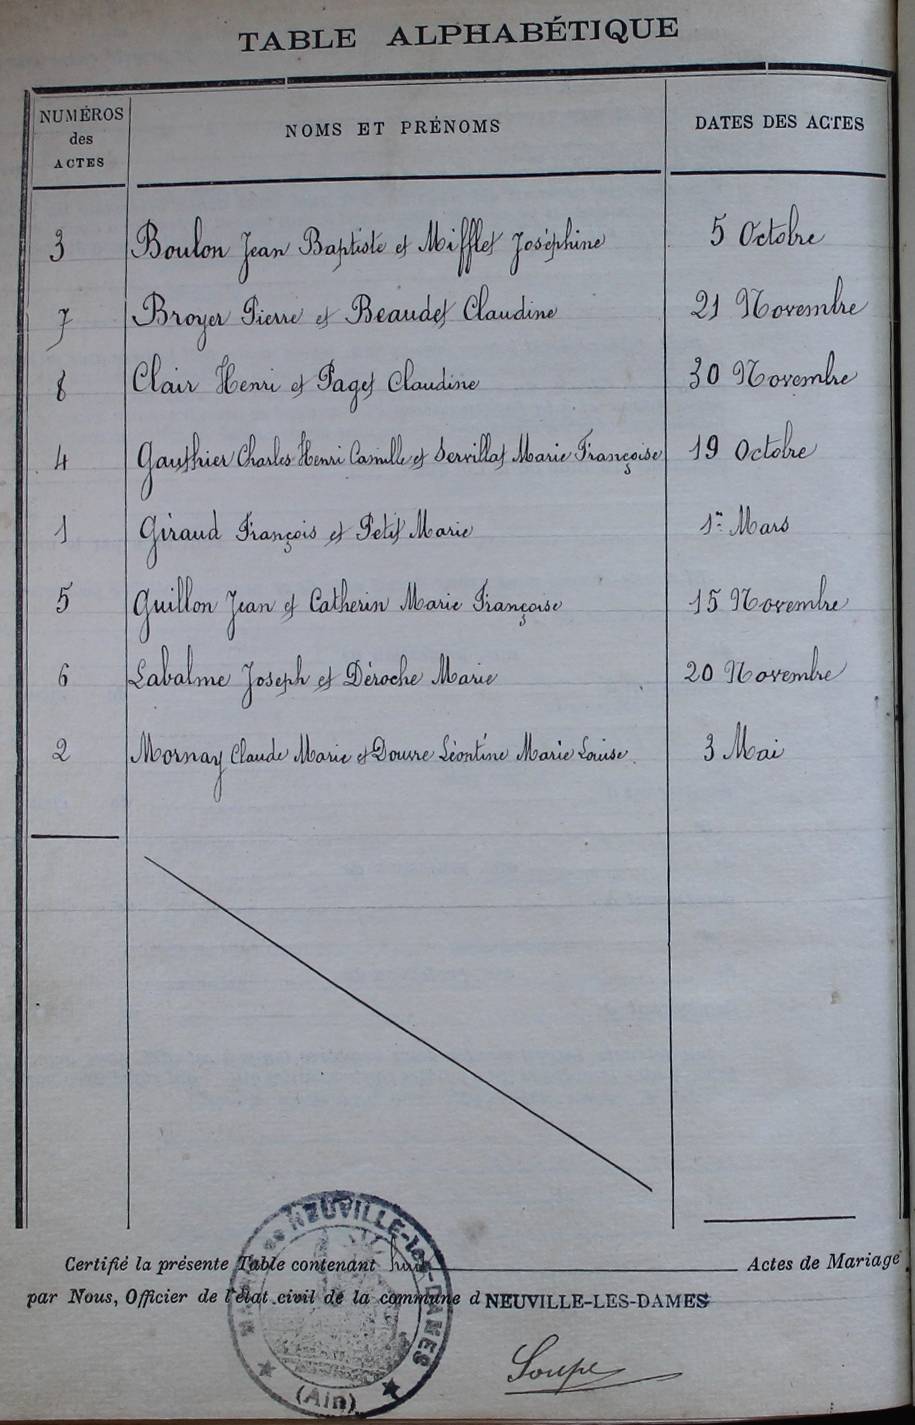 TABLE ALPHABÉTIQUE
NUMÉROS des ACTES NOMS ET PRÉNOMS DATES DES ACTES
3 Boulon Jean Baptiste et Mifflet Joséphine 5 Octobre
7 Broyer Pierre et Beaudet Claudine 21 Novembre
8 Clair Henri et Paget Claudine 30 Novembre
4 Gauthier Charles Henri Camille et Servillat Marie Françoise 19 Octobre
1 Giraud François et Petit Marie 1er Mars
5 Guillon Jean et Catherin Marie Françoise 15 Novembre
6 Labalme Joseph et Déroche Marie 20 Novembre
2 Mornay Claude Marie et Douvre Léontine Marie Louise 3 Mai
Certifié la présente Table contenant huit Actes de Mariage
par Nous, Officier de l'état civil de la commune d NEUVILLE-LES-DAMES
NEUVILLE-les-DAMES
(Ain)
Soupe